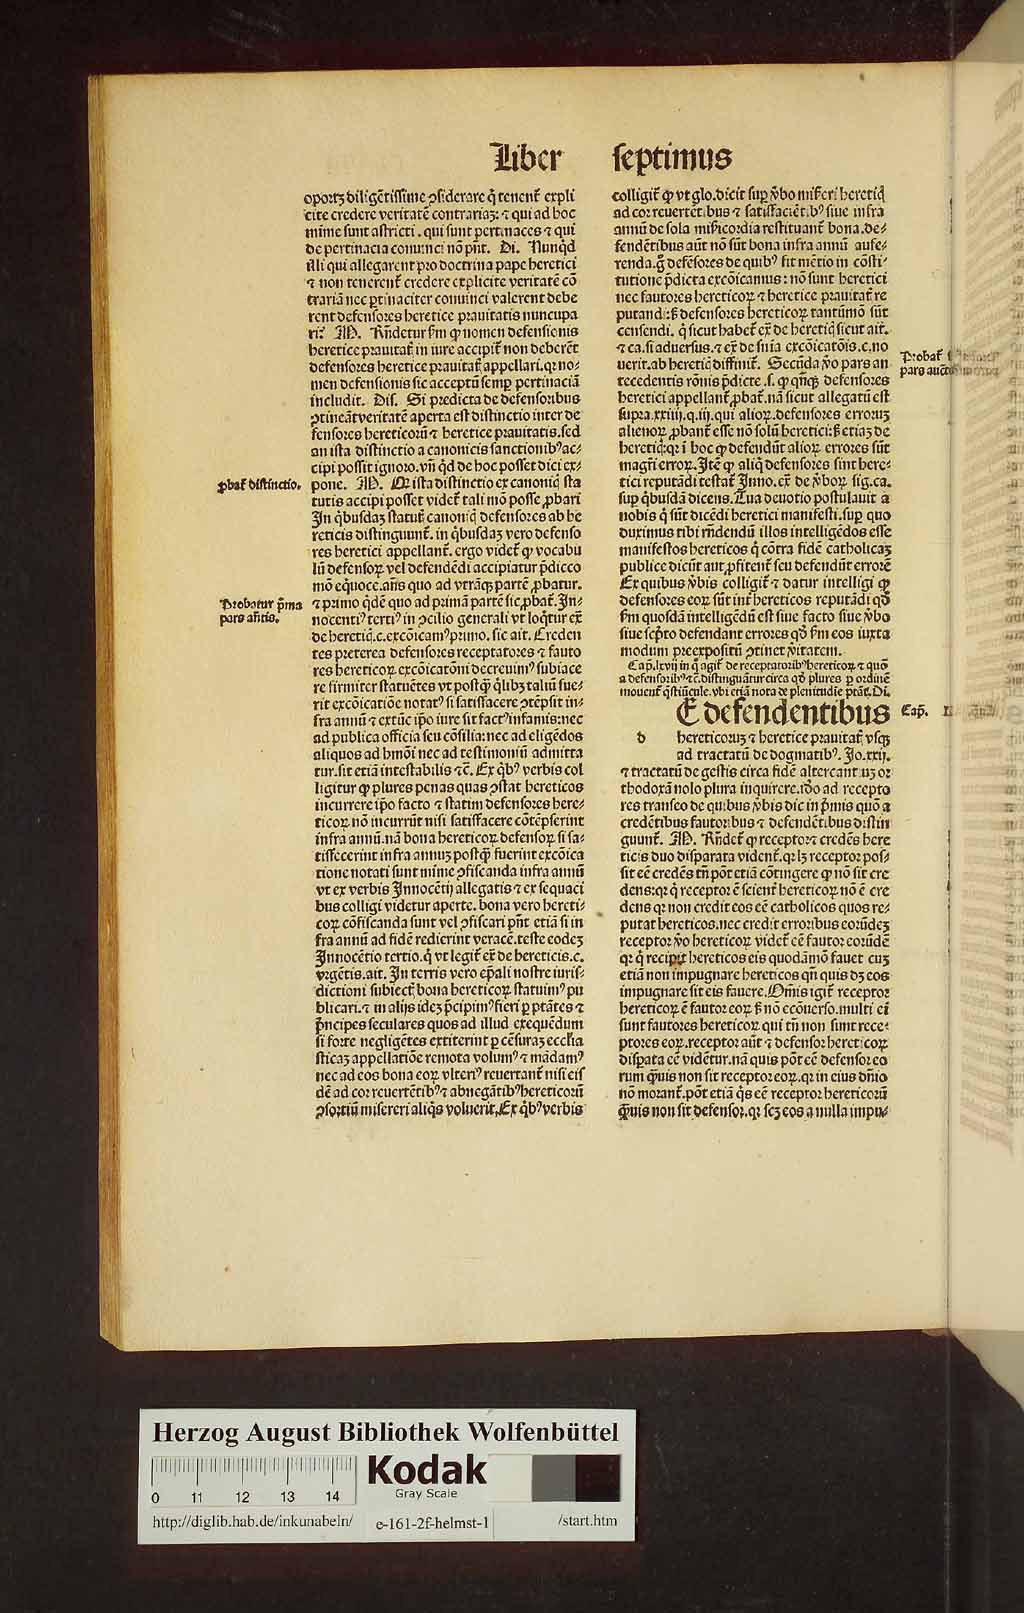 Liber septimus
oportꝫ diligētissime ↄsiderare q̇ tenent᷑ expli
cite credere veritatē contrariaꝫ: ⁊ qui ad hoc
mīme sunt astricti. qui sunt pertinaces ⁊ qui
de pertinacia conuinci nō pñt. Di. Nunq̇d
illi qui allegarent pro doctrina pape heretici
⁊ non tenerent᷑ credere explicite veritatē cō
trariā nec ꝑtinaciter conuinci valerent debe
rent defensores heretice prauitatis nuncupa
ri? M. Rñdetur ẜm ꝙ nomen defensionis
heretice prauitat᷑ in iure accipit᷑ non deberēt
defensores heretice prauitat᷑ appellari. qꝛ no⸗
men defensionis sic acceptū semꝑ pertinaciā
includit. Dis. Si predicta de defensoribus
ↄtineāt veritatē aperta est distinctio inter de
fensores hereticorū ⁊ heretice prauitatis. sed
an ista distinctio a canonicis sanctionibꝰ ac⸗
cipi possit ignoro. vñ q̇d de hoc posset dici ex⸗
pone. M. Qꝫ ista distinctio ex canoniq̇ sta
ꝓbat᷑ distinctio.
tutis accipi posset videt᷑ tali mō posse ꝓbari
In q̇busdaꝫ statut᷑ canoniq̇ defensores ab he
reticis distinguunt᷑. in q̇busdaꝫ vero defenso
res heretici appellant᷑. ergo videt᷑ ꝙ vocabu
lū defensoꝝ vel defendēdi accipiatur p̄dicco
mō eq̇uoce. añs quo ad vtrāqꝫ partē ꝓbatur.
⁊ primo q̇dē quo ad primā partē sic ꝓbat᷑. In⸗
Probatur p̄ma
pars añtis.
nocentiꝰ tertiꝰ in ↄcilio generali vt loq̇tur ex̄
de heretiq̇. c. excōicamꝰ primo. sic ait. Creden
tes preterea defensores receptatores ⁊ fauto
res hereticoꝝ excōicatōni decreuimꝰ subiace
re firmiter statuētes vt postꝙ̄ q̇libꝫ taliū fue⸗
rit excōicatiōe notatꝰ si satisfacere ↄtēpsit in⸗
fra annū ⁊ extūc ip̄o iure sit factꝰ infamis: nec
ad publica officia seu cōsilia: nec ad eligēdos
aliquos ad hmōi nec ad testimoniū admitta
tur. sit etiā intestabilis ⁊c̄. Ex q̇bꝰ verbis col
ligitur ꝙ plures penas quas ↄstat hereticos
incurrere ip̄o facto ⁊ statim defensores here⸗
ticoꝝ nō incurrūt nisi satisfacere cōtēpserint
infra annū. nā bona hereticoꝝ defensoꝝ si sa⸗
tisfecerint infra annuꝫ postꝙ̄ fuerint excōica
tione notati sunt mīme ↄfiscanda infra annū
vt ex verbis Innocētij allegatis ⁊ ex sequaci
bus colligi videtur aperte. bona vero hereti⸗
coꝝ cōfiscanda sunt vel ↄfiscari pñt etiā si in
fra annū ad fidē redierint veracē. teste eodeꝫ
Innocētio tertio. q̇ vt legit᷑ ex̄ de hereticis. c.
vrgētis. ait. In terris vero tēꝑali nostre iuris⸗
dictioni subiect᷑ bona hereticoꝝ statuimꝰ pu
blicari. ⁊ in alijs ideꝫ p̄cipimꝰ fieri ꝑ ptātes ⁊
p̄ncipes seculares quos ad illud exequēdum
si forte negligētes extiterint ꝑ cēsuraꝫ eccl̄ia
sticaꝫ appellatiōe remota volumꝰ ⁊ mādamꝰ
nec ad eos bona eoꝝ vlteriꝰ reuertant᷑ nisi eis
dē ad cor reuertētibꝰ ⁊ abnegātibꝰ hereticorū
ↄsortiū misereri aliq̇s voluerit. Ex q̇bꝰ verbis
colligit᷑ ꝙ vt glo. dicit suꝑ v̄bo mis̄eri heretiq̇
ad cor reuertētibus ⁊ satisfaciētibꝰ siue infra
annū de sola mis̄icordia restituant᷑ bona. de⸗
fendētibus aūt nō sūt bona infra annū aufe⸗
renda. g̊ defēsores de quibꝰ fit mētio in cōsti⸗
tutione p̄dicta excōicamus: nō sunt heretici
nec fautores hereticoꝝ ⁊ heretice prauitat᷑ re
putandi: sꝫ defensores hereticoꝝ tantūmō sūt
censendi. q̇ sicut habet᷑ ex̄ de heretiq̇ sicut ait.
⁊ ca. si aduersus. ⁊ ex̄ de snīa excōicatōis. c. no
uerit. ab heretiq̇ diffinit᷑. Secūda v̄o pars an
tecedentis rōnis p̄dicte. s. ꝙ q̄nqꝫ defensores
heretici appellant᷑ ꝓbat᷑. nā sicut allegatū est
supra. xxiiij. q. iij. qui alioꝝ. defensores erroruꝫ
alienoꝝ ꝓbant᷑ esse nō solū heretici: sꝫ etiaꝫ de
heretiq̇: qꝛ ī hoc ꝙ defendūt alioꝝ errores sūt
magr̄i erroꝝ. Itē ꝙ aliq̇ defensores sint here⸗
tici reputādi testat᷑ Inno. ex̄ de v̄boꝝ sig. ca.
suꝑ q̇busdā dicens. Tua deuotio postulauit a
nobis q̇ sūt dicēdi heretici manifesti. suꝑ quo
duximus tibi rñdendū illos intelligēdos esse
manifestos hereticos q̇ cōtra fidē catholicaꝫ
publice dicūt aut ꝓfitent᷑ seu defendūt errorē
Ex quibus v̄bis colligit᷑ ⁊ datur intelligi ꝙ
defensores eoꝝ sūt int᷑ hereticos reputādi qḋ
ẜm quosdā intelligēdū est siue facto siue v̄bo
siue sep̄to defendant errores qḋ ẜm eos iuxta
modum preexpositū ↄtinet v̄itatem.
Cap̄. lxvij in q̇ agit᷑ de receptatoribꝰ hereticoꝝ ⁊ quō
a defensoribꝰ ⁊c̄. distinguātur circa qḋ plures ꝑ ordinē
mouent᷑ q̄stiūcule. vbi etiā nota de plenitudīe ptāt᷑. Di.
E defendentibus
d hereticoruꝫ ⁊ heretice prauitat᷑ vsqꝫ
ad tractatū de dogmatibꝰ. Jo. xxij.
⁊ tractatū de gestis circa fidē altercantiuꝫ or
thodoxā nolo plura inquirere. iḋo ad recepto
res transeo de quibus v̄bis dic in p̄mis quō a
credētibus fautoribus ⁊ defendētibus distin
guunt᷑. M. Rñdet᷑ ꝙ receptor ⁊ credēs here
ticis duo disparata vident᷑. qꝛ lꝫ receptor pos⸗
sit eē credēs tñ pōt etiā cōtingere ꝙ nō sit cre
dens: qꝛ q̇ receptor ē scient᷑ hereticoꝝ nō ē cre
dens qꝛ non credit eos eē catholicos quos re⸗
putat hereticos. nec credit erroribus eorūdeꝫ
receptor v̄o hereticoꝝ videt᷑ eē fautor eorūdē
qꝛ q̇ recipit hereticos eis quodāmō fauet cuꝫ
etiā non impugnare hereticos qñ quis dꝫ eos
impugnare sit eis fauere. Om̄is igit᷑ receptor
hereticoꝝ ē fautor eoꝝ sꝫ nō ecōuerso. multi eī
sunt fautores hereticoꝝ qui tñ non sunt rece⸗
ptores eoꝝ. receptor aūt ⁊ defensor hereticoꝝ
disꝑata eē vidētur. nā quis pōt eē defensor eo
rum ꝙ̄uis non sit receptor eoꝝ. qꝛ in eius dn̄io
nō morant᷑. pōt etiā q̇s eē receptor hereticorū
ꝙ̄uis non sit defensor. qꝛ scꝫ eos a nulla impu⸗
Probat᷑
pars
Cap̄.
Herzog August Bibliothek Wolfenbüttel
0 11 12 13 14
Kodak
Gray Scale
http://diglib.hab.de/inkunabeln/ e-161-2f-helmst-1 /start.htm